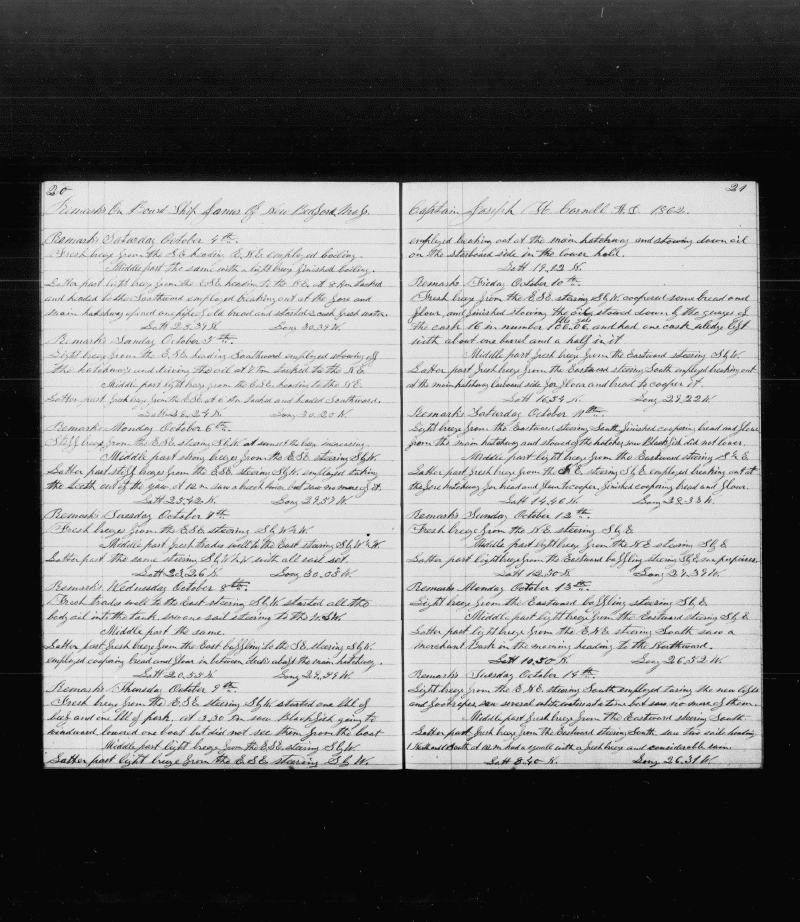 20
Remarks On Board Ship James Of New Bedford
Remarks Saturday October 4th.
Fresh breeze from the S.E. heading E.N.E. employed boiling.
Middle part the same with a light breeze finished boiling.
Latter part light breeze from the E.S.E. heading to the N.E. at 8 tacked
and headed to the Southward employed breaking out at the fore and
main hatchway found one pipe of old bread and started 2 cask fresh water.
Latt Long 30.39 W.
Remarks Sunday October 5th.
Light breeze from the E.S.E. heading Southward employed stowing off
the hatchways and driving the oil at tacked to the N.E.
Middle part light breeze from the E.S.E. heading to the N.E.
Latter part fresh breeze from the E.S.E. at 6 tacked and headed Southward.
Latt Long 30.20 W.
Remarks Monday October 6th.
Stiff breeze from the E.S.E. steering S by W. at sunset the breeze increasing.
Middle part strong breezes from the E.S.E. steering S by W.
Latter part stiff breezes from the E.S.E. steering S by W. employed taking
the teeth out of the jaw. at 12 m saw a but saw no more of it.
Latt 23.42 N Long 29.57 W.
Remarks Tuesday October 7th.
Fresh breeze from the E.S.E. steering S by W ½ W.
Middle part fresh trades well to the East steering S by W ½ W.
Latter part the same steering S by W ½ W with all sail set.
Latt Long 30.03 W.
Remarks Wednesday October 8th.
Fresh trades well to the East steering S by W. started all the
body oil into the tank. saw one sail steering to the
Middle part the same.
Latter part fresh breeze from the East baffling to the S.E. steering S by W.
employed coopering bread and flour in between decks abaft the main hatchway.
Latt 20.53 N Long 29.39 W.
Remarks Thursday October 9th.
Fresh breeze from the E.S.E. steering S by W. started one bbl of
beef and one bbl of pork. at 3.30 Pm saw Blackfish going to
windward lowered one boat but did not see them from the boat
Middle part light breeze from the E.S.E. steering S by W.
Latter part light breeze from the E.S.E. steering S by W.
21
Captain Joseph H. Cornell 1862.
employed breaking out at the main hatchway and stowing down oil
on the starboard side in the lower hold.
Latt 19.12 N.
Remarks Friday October 10th.
Fresh breeze from the E.S.E. steering S by W. coopered some bread and
flour, and finished stowing the oil, stowed down by the guages of
the cask 16 in number 106.06 and had one cask left
with about one barrel and a half in it
Middle part fresh breeze from the Eastward steering S by W.
Latter part fresh breeze from the Eastward steering South employed breaking out
at the main hatchway larboard side for flour and bread to cooper it.
Latt 16.34 N. Long 29.22 W.
Remarks Saturday October 11th.
Light breeze from the Eastward steering South, finished coopering bread and flour
from the main hatchway and stowed off the hatches, saw Blackfish did not lower.
Middle part light breeze from the Eastward steering S by E.
Latter part fresh breeze from the N.E. steering S by E. employed breaking out at
the fore hatchway for bread and flour to cooper, finished coopering bread and flour.
Latt 14.46 N. Long
Remarks Sunday October 12th.
Fresh breeze from the N.E. steering S by E.
Middle part light breeze from the N.E. steering S by E.
Latter part light breeze from the Eastward baffling steering S by E. saw porpoises.
Latt 12.30 N Long 27.39 W.
Remarks Monday October 13th.
Light breeze from the Eastward baffling steering S by E.
Middle part light breeze from the Eastward steering S by E
Latter part light breeze from the E.N.E. steering South saw a
merchant Bark in the morning heading to the Northward.
Latt 10.30 N. Long 26.52 W.
Remarks Tuesday October 14th.
Light breeze from the E.N.E. steering South employed taring the new lifts
and footropes, saw several at a time but saw no more of them.
Middle part fresh breeze from the Eastward steering South
Latter part fresh breeze from the Eastward steering South saw two sails heading
North and South at 12 m had a squall with a fresh breeze and considerable rain.
Latt 8.40 N. Long 26.31 W.